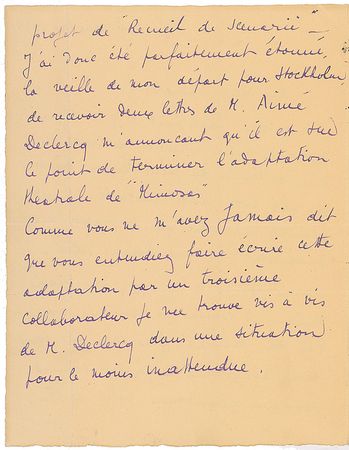 projet de "Recueil de Scenarii" –
J'ai donc été parfaitement étonné,
la veille de mon départ pour Stockholm
de recevoir deux lettres de M. Aimé
Declercq m'annoncant qu'il est sur
le point de terminer l'adaptation
theatrale de "Mimosas"
Comme vous ne m'avez Jamais dit
que vous entendiez faire écrire cette
adaptation par un troisième
collaborateur Je me trouve vis à vis
de M. Declercq dans une situation
pour le moins inattendue.